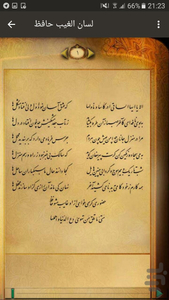 21:23
لسان الغیب حافظ
الا یا ایها الساقی ادر کاسا و ناولها که عشق آسان نمود اول ولی افتاد مشکل‌ها
به بوی نافه‌ای کاخر صبا زان طره بگشاید ز تاب جعد مشکینش چه خون افتاد در دل‌ها
مرا در منزل جانان چه امن عیش چون هر دم جرس فریاد می‌دارد که بربندید محمل‌ها
به می سجاده رنگین کن گرت پیر مغان گوید که سالک بی‌خبر نبود ز راه و رسم منزل‌ها
شب تاریک و بیم موج و گردابی چنین هایل کجا دانند حال ما سبکباران ساحل‌ها
همه کارم ز خود کامی به بدنامی کشید آخر نهان کی ماند آن رازی کز او سازند محفل‌ها
حضوری گر همی‌خواهی از او غایب مشو حافظ
متی ما تلق من تهوی دع الدنیا و اهملها